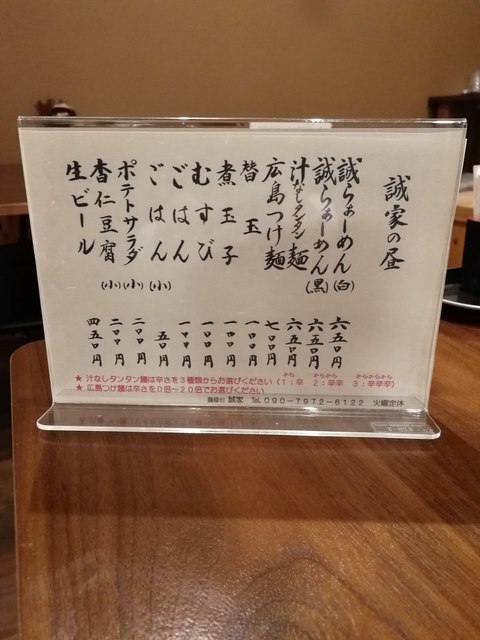 誠家の昼
誠らぁーめん(白) 六五〇円
誠らぁーめん(黒) 六五〇円
汁なしタンタン麺 六五〇円
広島つけ麺 七〇〇円
替玉 一〇〇円
煮玉子 一〇〇円
むすび 一〇〇円
ごはん 一〇〇円
ごはん(小) 五〇円
ポテトサラダ(小) 二〇〇円
杏仁豆腐(小) 二〇〇円
生ビール 四五〇円
★汁なしタンタン麺は辛さを3種類からお選びください(1:辛 2:辛辛 3:辛辛辛)
から からから からからから
★広島つけ麺は辛さを0倍~20倍でお選びください
誠家 TEL 090-7972-6122 火曜定休